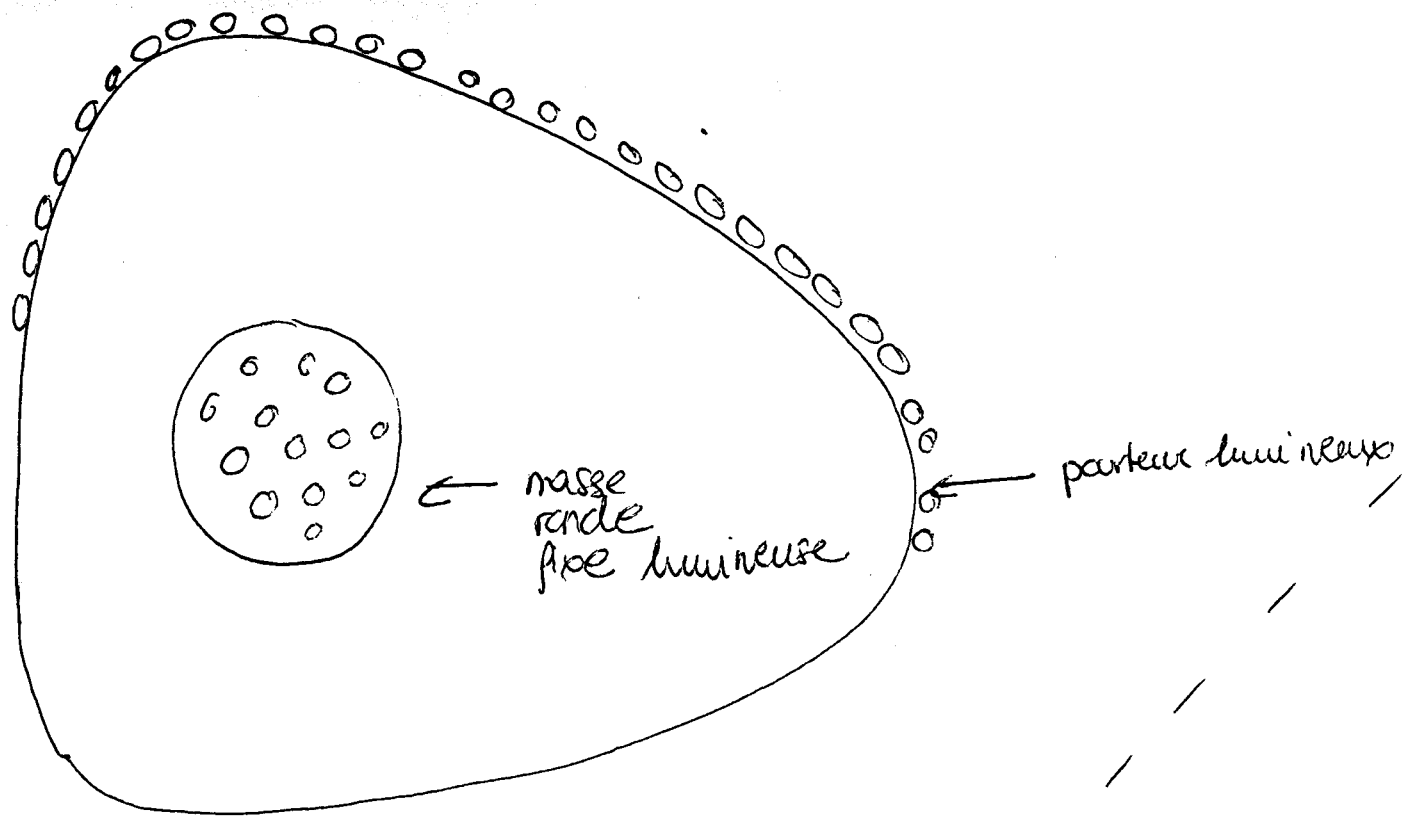 masse
ronde
fixe lumineuse
porteur lumineux